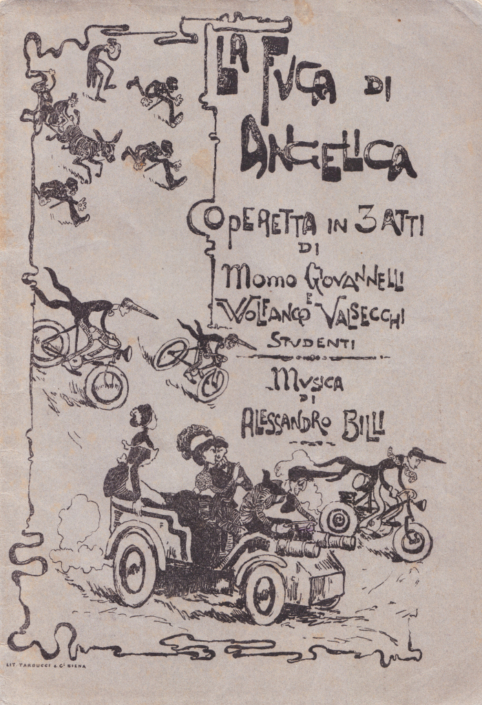 LA FUGA DI
ANGELICA
OPERETTA IN 3 ATTI
DI
MOMO GIOVANNELLI
E
WOLFANGO VALSECCHI
STUDENTI
MUSICA
DI
ALESSANDRO BILLI
LIT. TARDUCCI & C° SIENA